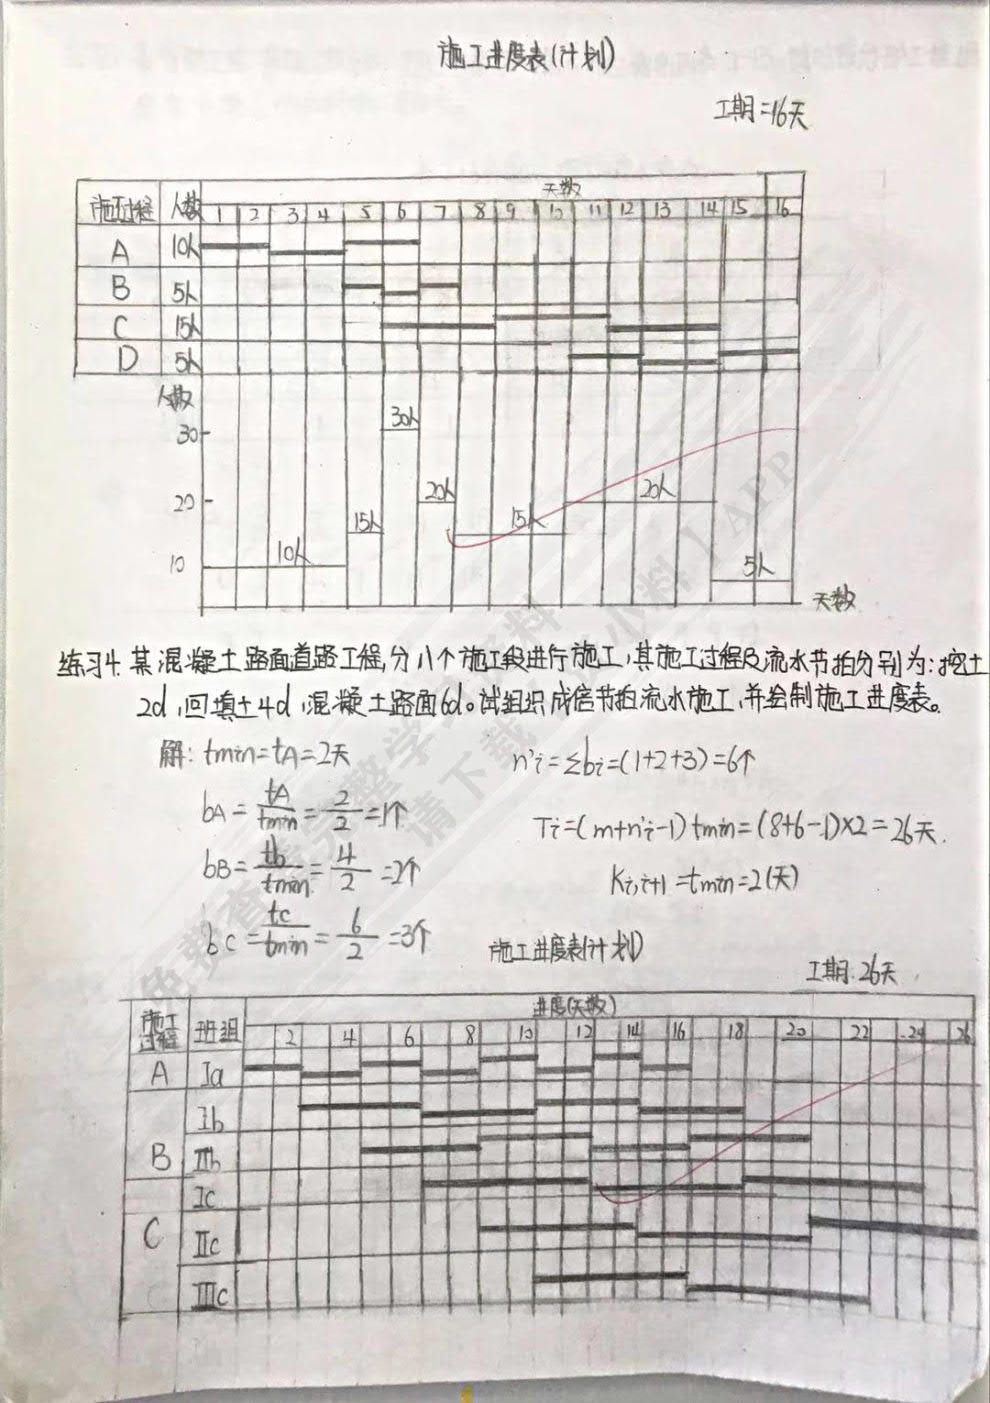 施工进度表(计划)
工期=16天
施工过程 人数 天数
1 2 3 4 5 6 7 8 9 10 11 12 13 14 15 16
A 10人
B 5人
C 15人
D 5人
人数
30 30人
20 20人 20人
15人 15人
10 10人 5人
天数
练习4.某混凝土路面道路工程,分八个施工段进行施工,其施工过程及流水节拍分别为:挖土
2d,回填土4d,混凝土路面6d。试组织成倍节拍流水施工,并绘制施工进度表。
解: tmin=tA=2天
n'i=∑bi=(1+2+3)=6个
bA=tA/tmin=2/2=1个
Ti=(m+n'i-1)tmin=(8+6-1)×2=26天.
bB=tb/tmin=4/2=2个
Ki,i+1=tmin=2(天)
bC=tc/tmin=6/2=3个
施工进度表(计划)
工期:26天
施工过程 班组 进度(天数)
2 4 6 8 10 12 14 16 18 20 22 24 26
A Ia
Ib
B IIb
Ic
C IIc
IIIc
免费查看完整学习资料
请下载
APP